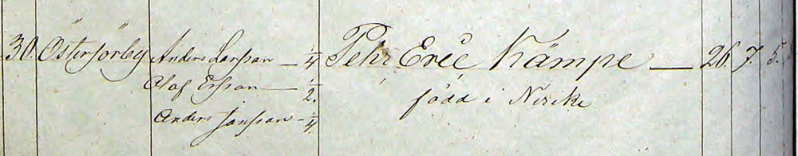 30. Östersörby Anders Larsson — 1/4 Pehr Eric Kämpe — 26. 7. 5.
Olof Ersson — 1/2. född i Nerike
Anders Jansson — 1/4.